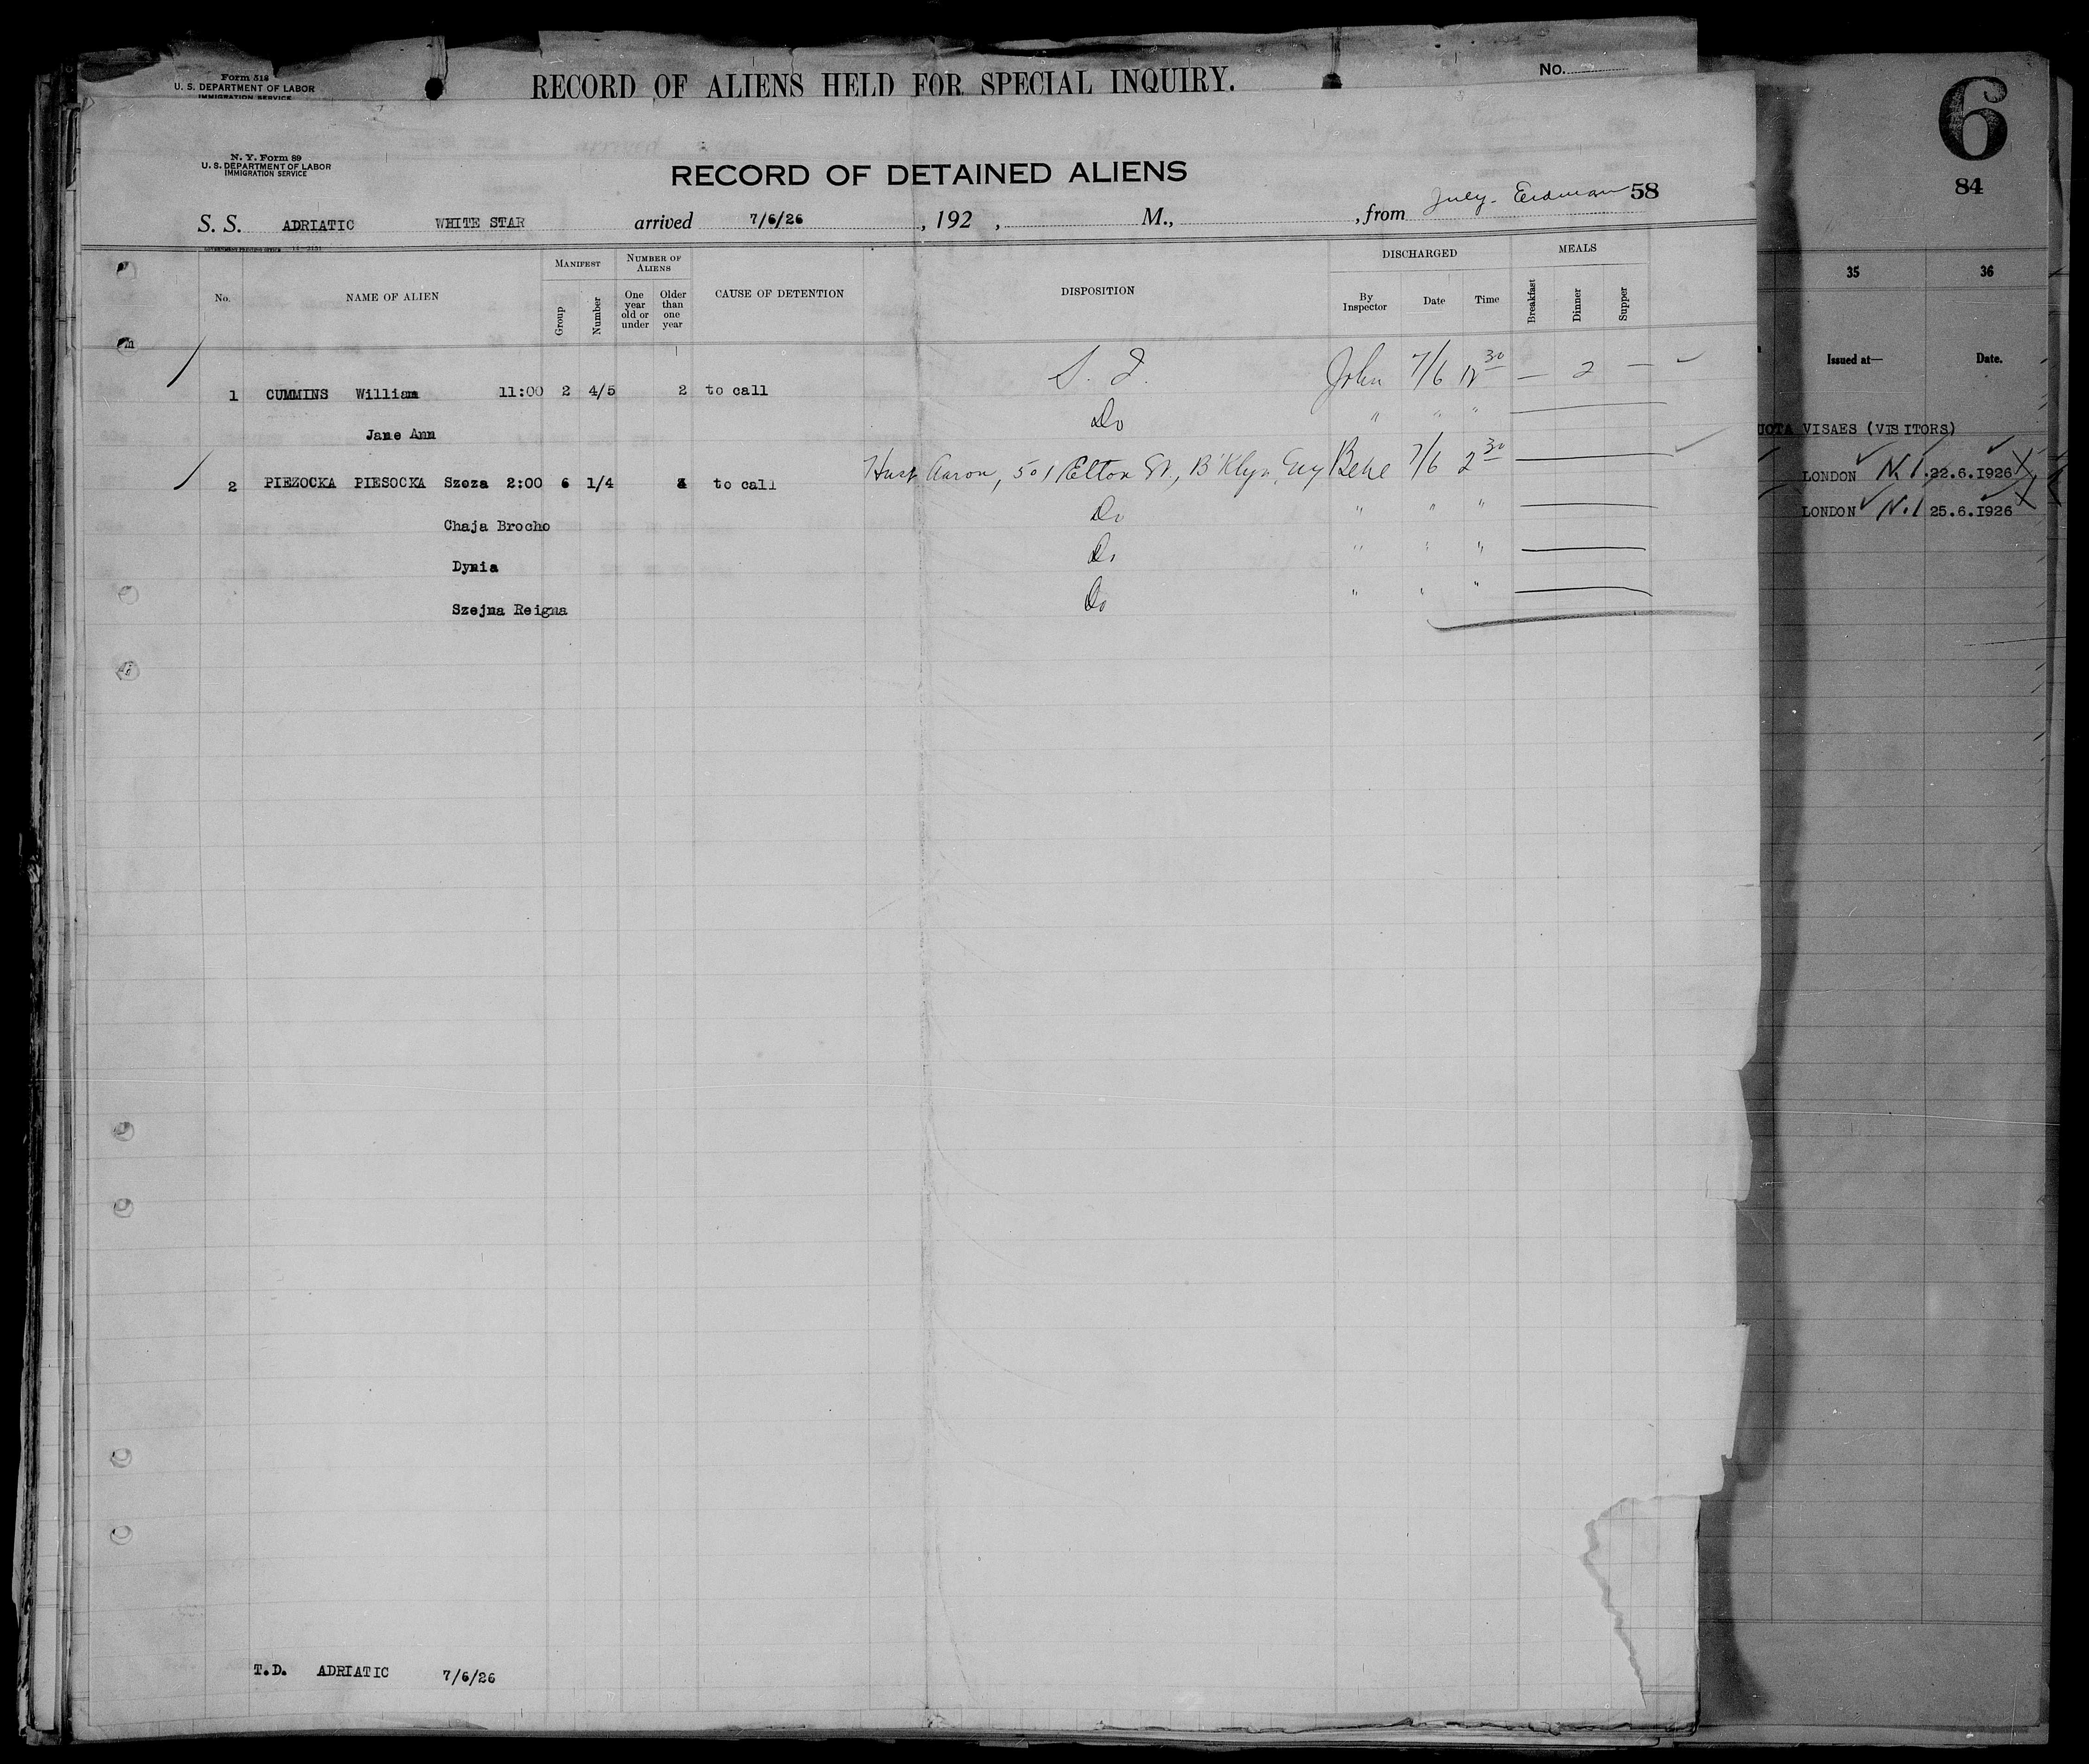 Form 518
U. S. DEPARTMENT OF LABOR
IMMIGRATION SERVICE
RECORD OF ALIENS HELD FOR SPECIAL INQUIRY.
No.
6
84
N. Y. Form 89
U. S. DEPARTMENT OF LABOR
IMMIGRATION SERVICE
RECORD OF DETAINED ALIENS
58
S. S. ADRIATIC WHITE STAR arrived 7/6/26 , 192 , M., , from July. Erdman
No. NAME OF ALIEN MANIFEST Group Number NUMBER OF ALIENS One year old or under Older than one year CAUSE OF DETENTION DISPOSITION DISCHARGED By Inspector Date Time MEALS Breakfast Dinner Supper
1 CUMMINS William 11:00 2 4/5 2 to call S. I. John 7/6 12 30 — 2 —
Jane Ann Do " " "
2 PIEZOCKA PIESOCKA Szeza 2:00 6 1/4 4 to call Husb Aaron, 501 Elton St., B'Klyn, 7/6 2 30
Chaja Brocho Do " " "
Dynia Do " " "
Szejna Reigna Do " " "
T.D. ADRIATIC 7/6/26
35 36
Issued at— Date.
UOTA VISAES (VISITORS)
LONDON N.I. 22.6.1926
LONDON N.I 25.6.1926